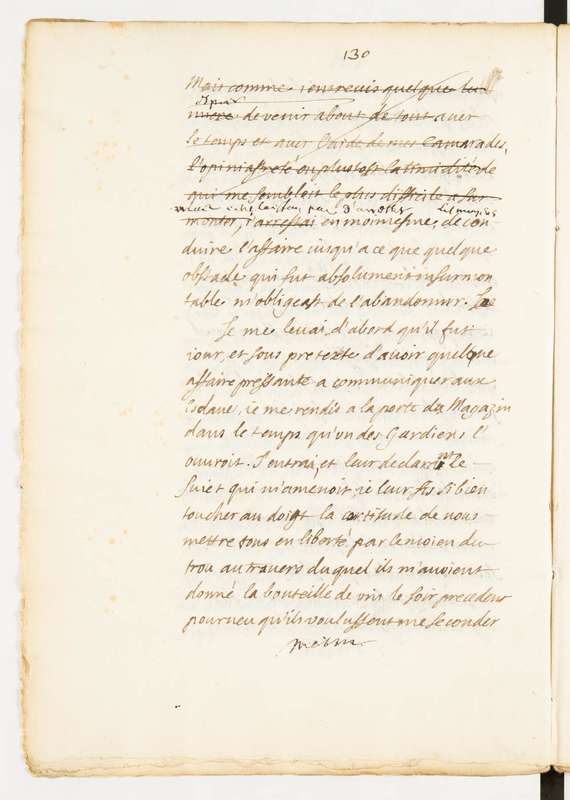 130
Mais comme i'entreuis quelque lu-
miere de venir about de tout auec
le temps et auec l'aide de mes Camarades,
l'opiniastreté ou plustost la timidité de
qui me sembloit le plus difficile a sur
monter, i'arrestai en moimesme, de con-
duire l'affaire iusqu'a ce que quelque
obstacle qui fut absolument insurmon
table m'obligeast de l'abandonner.
Je me leuai d'abord qu'il fut
iour, et sous pretexte d'auoir quelque
affaire pressante a communiquer aux
Esclaues, ie me rendis a la porte du Magazin
dans le temps qu'vn des Gardiens l'
ouuroit. J'entrai, et leur declarant le
suiet qui m'amenoit, ie leur fis si bien
toucher au doigt la certitude de nous
mettre tous en liberté par le moien du
trou au trauers duquel ils m'auoient
donné la bouteille de vin le soir precedent
pourueu qu'ils voulussent me seconder